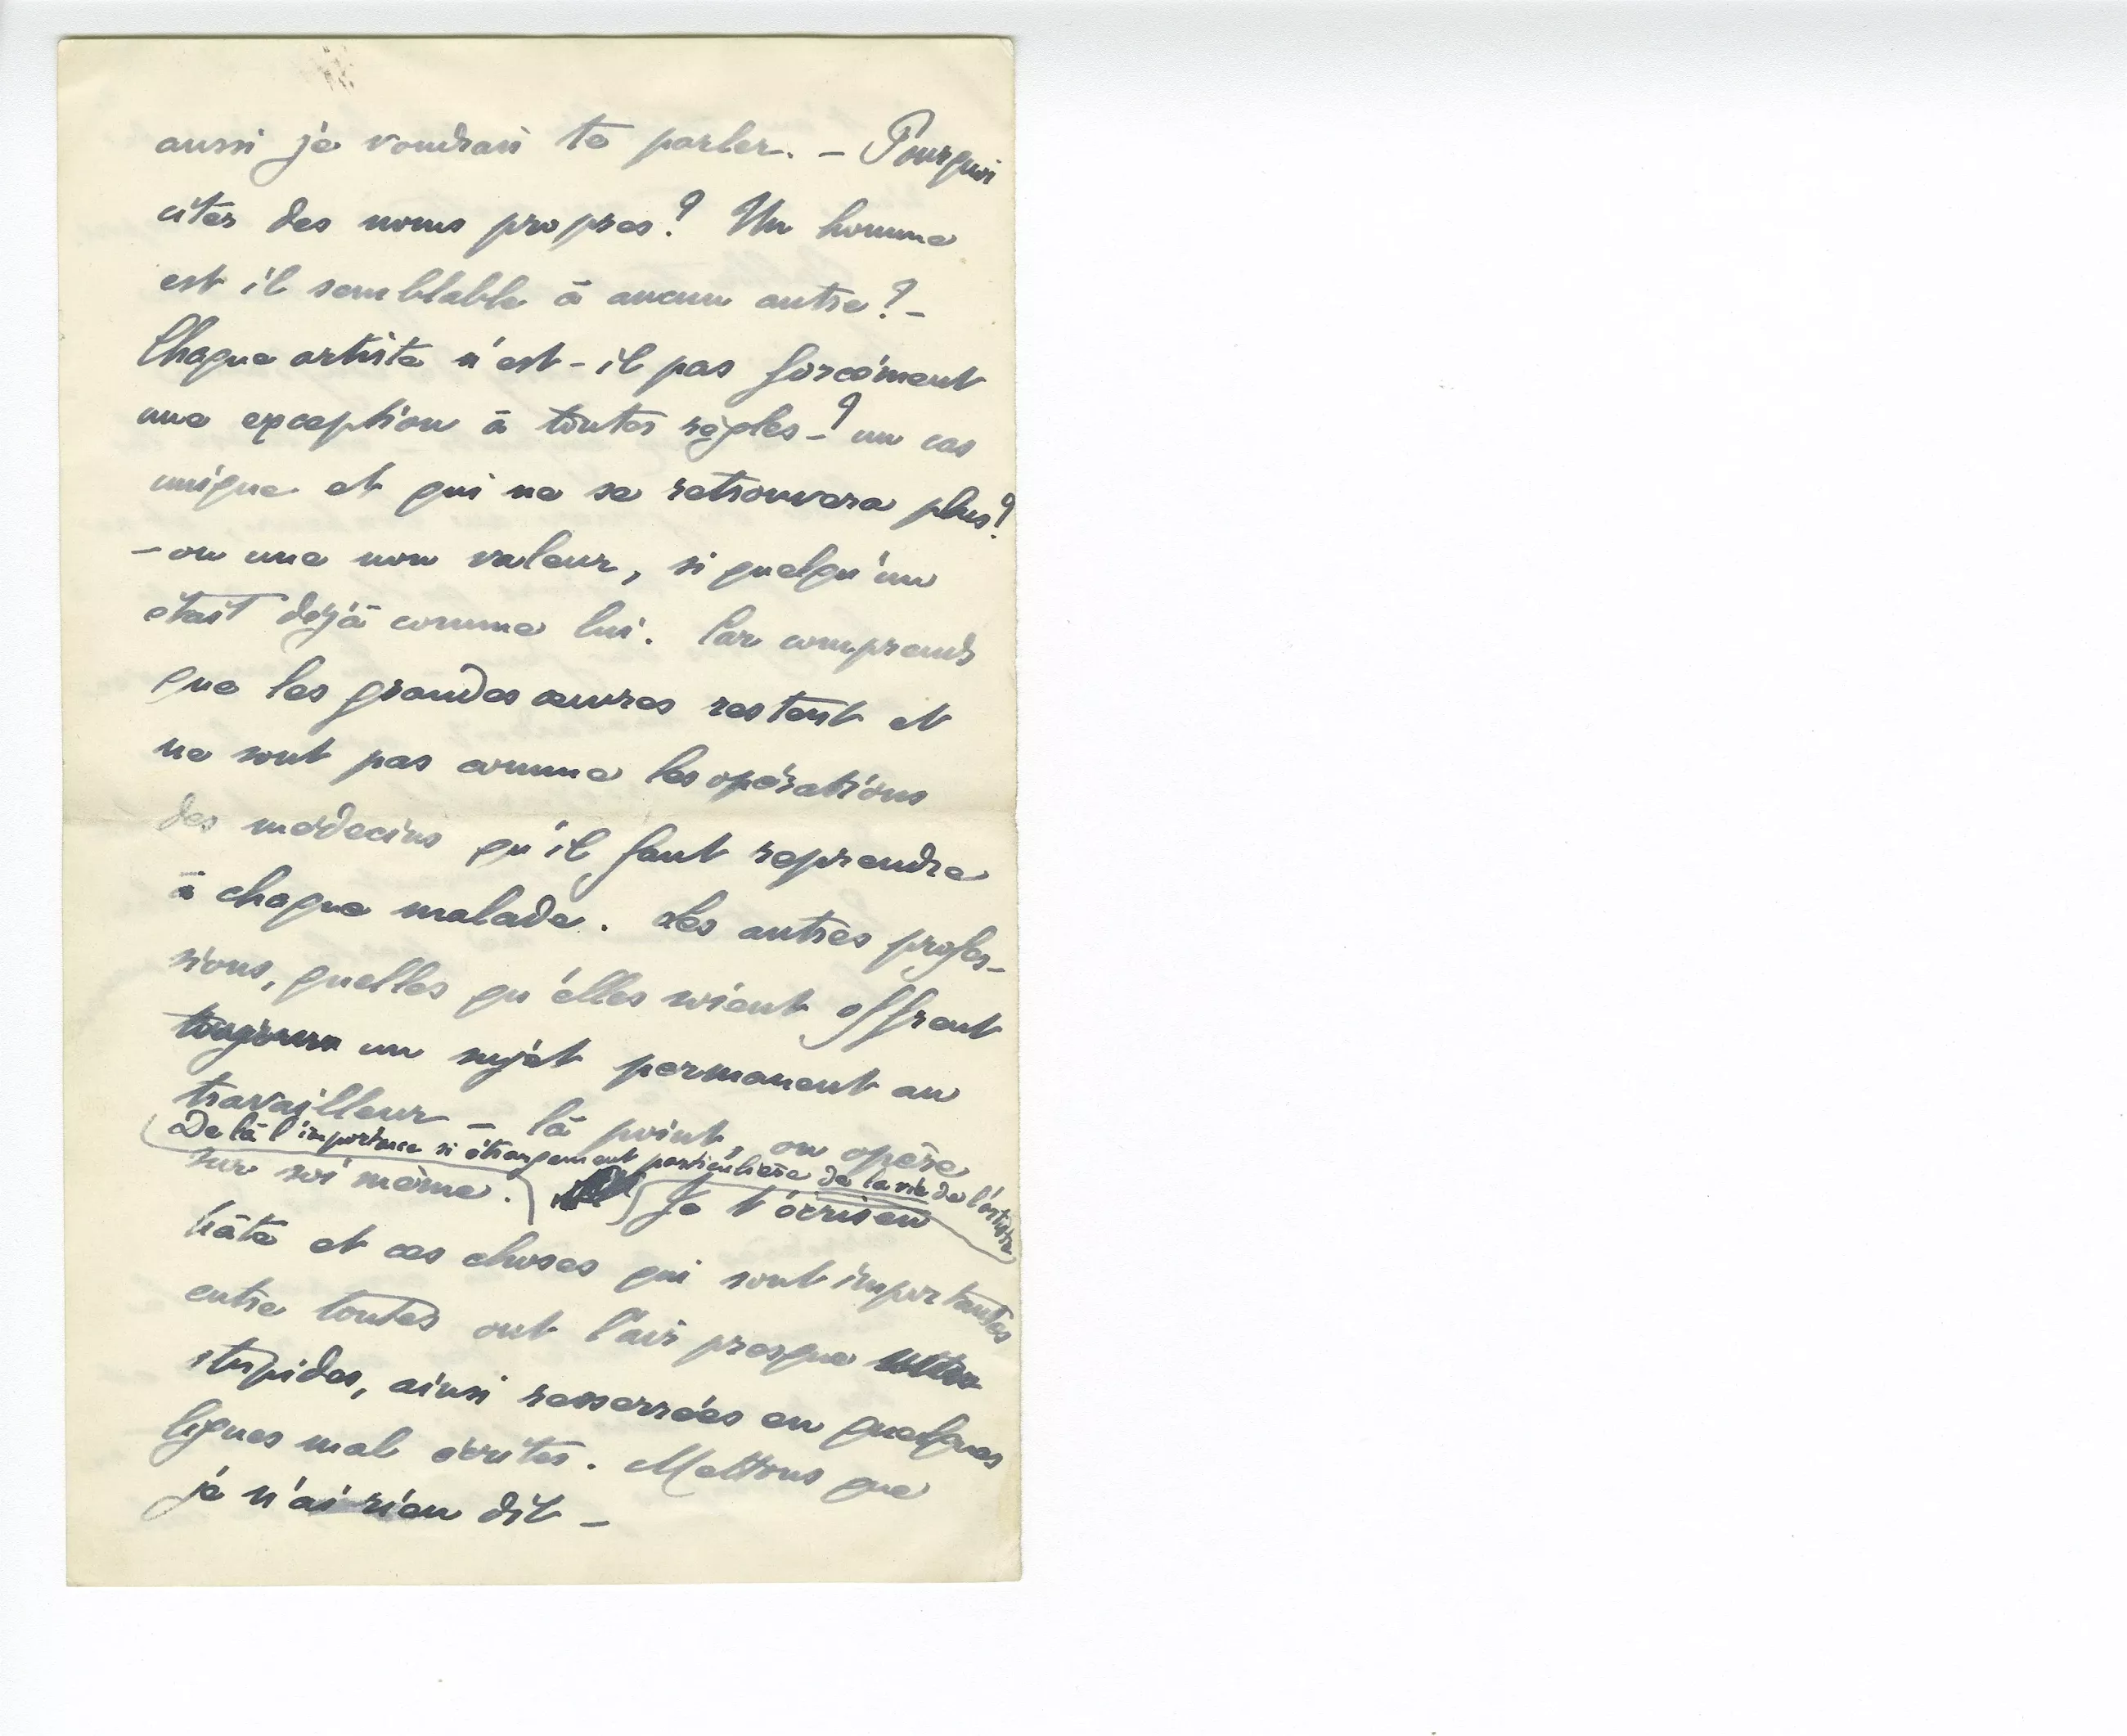 aussi je voudrais te parler. — Pourquoi
citer des noms propres? Un homme
est il semblable à aucun autre? —
Chaque artiste n'est-il pas forcément
une exception à toutes règles —? un cas
unique et qui ne se retrouvera plus?
— ou une non valeur, si quelqu'un
était déjà comme lui. Car comprends
que les grandes œuvres restent et
ne sont pas comme les opérations
des médecins qu'il faut reprendre
à chaque malade. Les autres profes-
sions, quelles qu'elles soient offrent
toujours un sujet permanent au
travailleur — là point, on opère
sur soi même.
De là l'importance si étrangement particulière de la vie de l'artiste
Je t'écris en
hâte et ces choses qui sont importantes
entre toutes ont l'air presque
stupides, ainsi resserrées en quelques
lignes mal écrites. Mettons que
je n'ai rien dit —